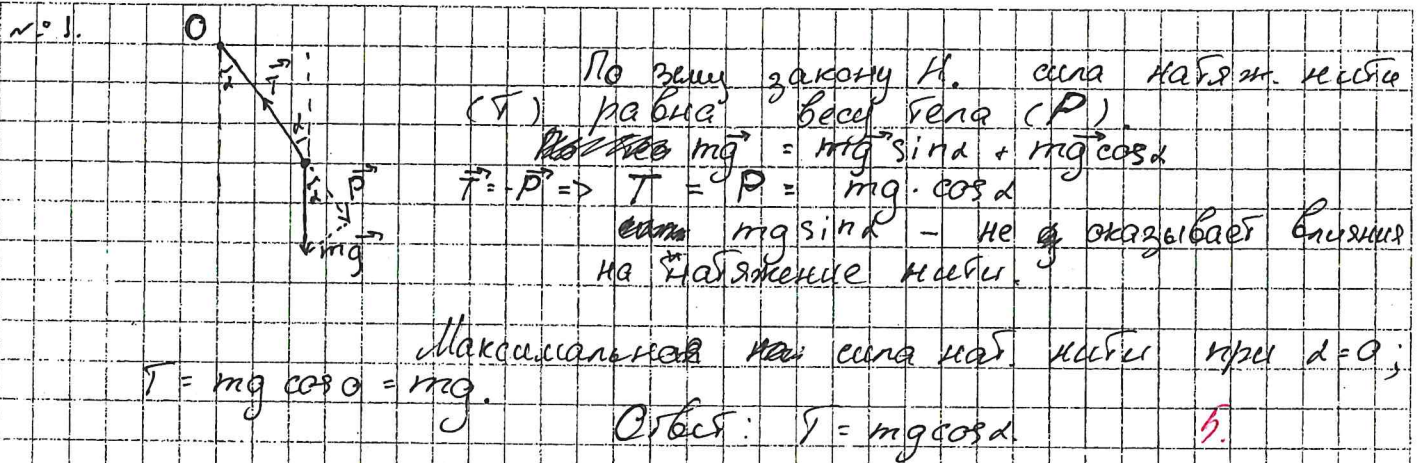 № 1.
O
α
T⃗
α
α
P⃗
mg⃗
По 3ему закону Н. сила натяж. нити
(T) равна весу тела (P).
mg⃗ = mg⃗ sinα + mg⃗ cosα
T⃗ = -P⃗ => T = P = mg · cosα
mg sinα - не оказывает влияния
на натяжение нити.
Максимальная сила нат. нити при α=0;
T = mg cos 0 = mg.
Ответ: T = mg cosα.
5.